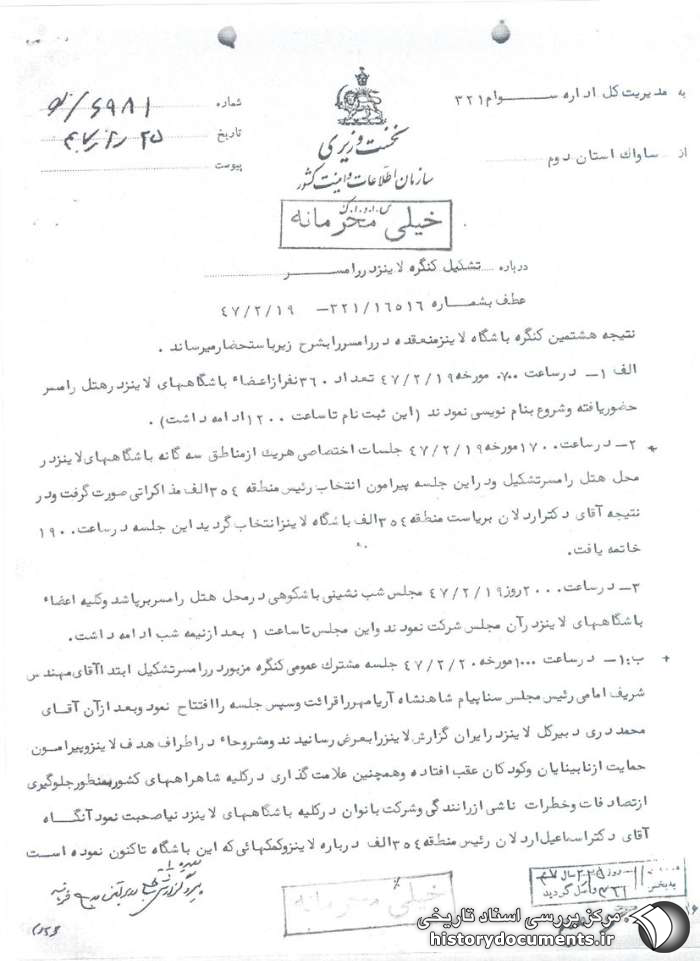 به مدیریت کل اداره ســوام ۳۲۱
از ساواك استان دوم
نخست وزیری
سازمان اطلاعات و امنیت کشور
س.ا.و.ا.ك
خیلی محرمانه
شماره
تاریخ
پیوست
درباره تشکیل کنگره لاینزدررامســر
عطف بشماره ۳۲۱/۱۶۵۱۶ــ ۴۷/۲/۱۹
نتیجه هشتمین کنگره باشگاه لاینزمنعقده دررامسررابشرح زیرباستحضارمیرساند .
الف ۱ــ درساعت ۰۷۰۰ مورخه ۴۷/۲/۱۹ تعداد ۳۶۰نفرازاعضاء باشگاههای لاینزدرهتل رامسر
حضوریافته وشروع بنام نویسی نمودند (این ثبت نام تاساعت ۱۲۰۰ ادامه داشت) .
۲ــ درساعت ۱۷۰۰ مورخه ۴۷/۲/۱۹ جلسات اختصاصی هریك ازمناطق سه گانه باشگاههای لاینزدر
محل هتل رامسرتشکیل ودراین جلسه پیرامون انتخاب رئیس منطقه ۳۵۴الف مذاکراتی صورت گرفت ودر
نتیجه آقای دکتراردلان بریاست منطقه ۳۵۴الف باشگاه لاینزانتخاب گردید این جلسه درساعت ۱۹۰۰
خاتمه یافت.
۳ــ درساعت ۲۰۰۰ روز ۴۷/۲/۱۹ مجلس شب نشینی باشکوهی درمحل هتل رامسربرپاشد وکلیه اعضاء
باشگاههای لاینزدرآن مجلس شرکت نمودند واین مجلس تاساعت ۱ بعدازنیمه شب ادامه داشت.
ب:۱ــ درساعت ۱۰۰۰ مورخه ۴۷/۲/۲۰ جلسه مشترك عمومی کنگره مزبوردررامسرتشکیل ابتداآقای مهندس
شریف امامی رئیس مجلس سناپیام شاهنشاه آریامهرراقرائت وسپس جلسه راافتتاح نمود وبعدازآن آقــای
محمددری دبیرکل لاینزدرایران گزارش لاینزرابعرض رسانیدند ومشروحاً دراطراف هدف لاینزوپیرامــون
حمایت ازنابینایان وکودکان عقب افتاده وهمچنین علامت گذاری درکلیه شاهراههای کشوربمنظورجلوگیری
ازتصادفات وخطرات ناشی ازرانندگی وشرکت بانوان درکلیه باشگاههای لاینزدنیاصحبت نمودآنگــاه
آقای دکتراسماعیل اردلان رئیس منطقه ۳۵۴الف درباره لاینزوکمکهائی که این باشگاه تاکنون نموده اسـت
خیلی محرمانه
مرکز بررسی اسناد تاریخی
historydocuments.ir